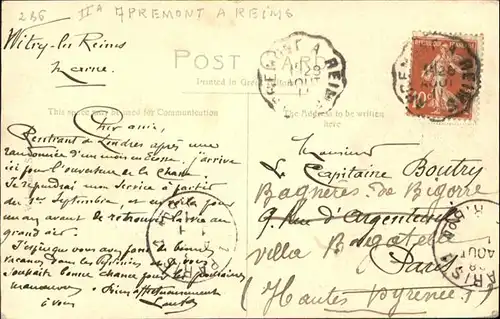 236 IIA APREMONT A REIMS
Witry-les Reims
Marne.
POST CARD
Printed in
This space may be used for Communication
The Address to be written
here
Cher ami,
Rentrant de Londres après une
randonnée d'un mois en Ecosse. j'arrive
ici pour l'ouverture de la chasse.
Je reprendrai mon service à partir
du 1er Septembre, et en voilà pour
un an avant de retrouver la vie au
grand air.
J'espère que vous avez fait de bonnes
vacances dans les Pyrénées et vous
souhaite bonne chance pour les prochaines
manoeuvres. Bien affectueusement
à vous
Monsieur
Le Capitaine Boutry
Bagnères de Bigorre
9. Rue d'Argenteuil
villa Bagatelle
Paris
(Hautes Pyrenées)
APREMONT A REIMS
28
AOUT
10
PARIS
28
AOUT